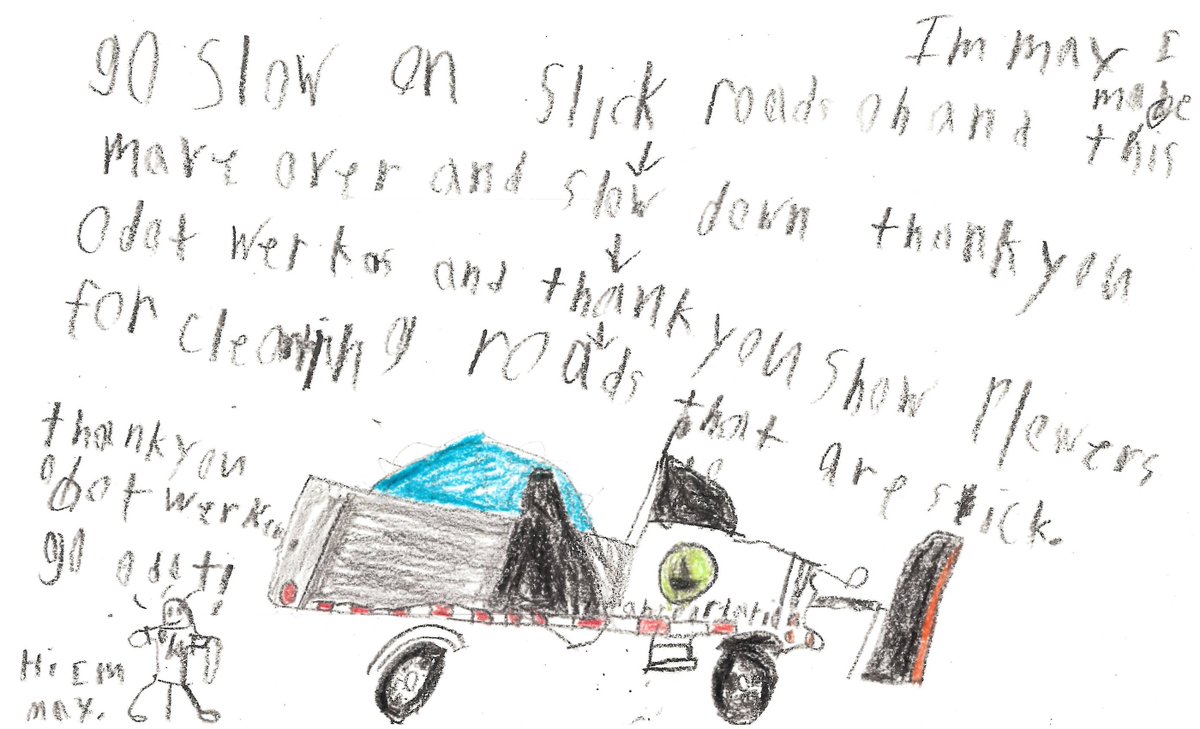 Im max I
made
this
go slow on slick roads oh and
move over and slow down thank you
Odot werkos and thank you show Plowers
for cleaning roads that are slick.
thank you
odot
go odot!
Hi Im
max.